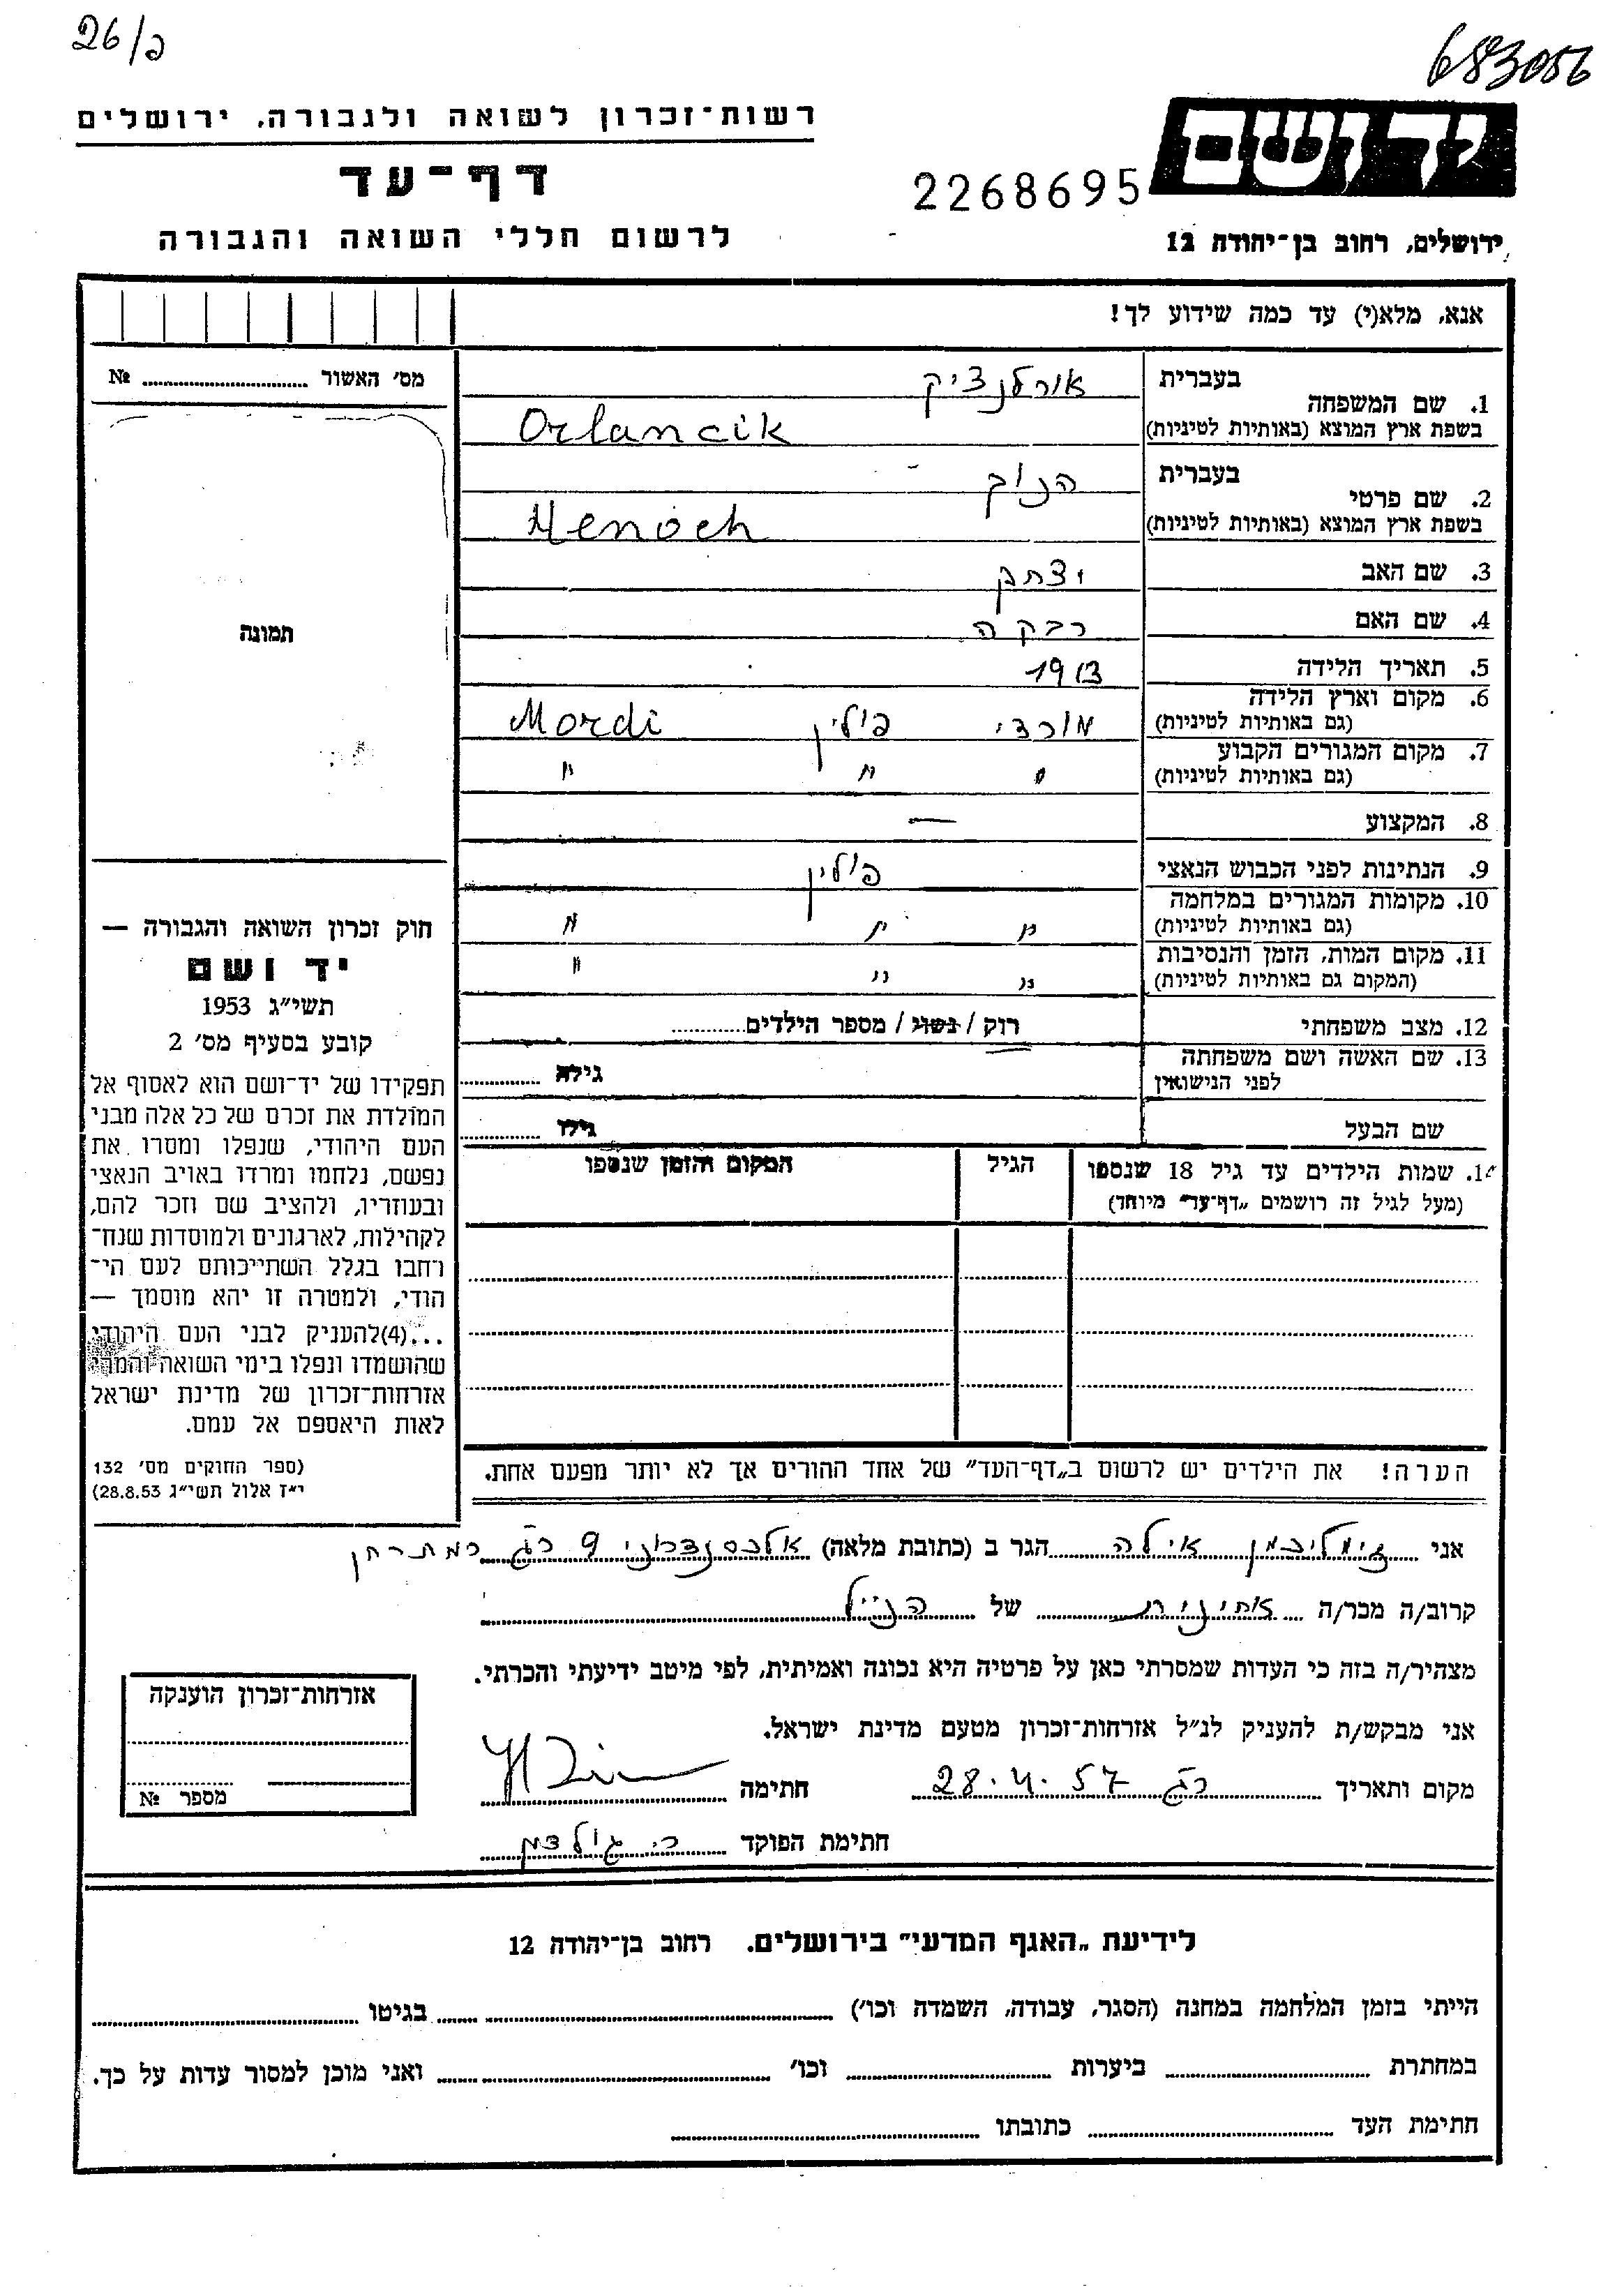 26/כ
683056
רשות־זכרון לשואה ולגבורה, ירושלים
דף־עד
לרשום חללי השואה והגבורה
2268695
יד ושם
ירושלים, רחוב בן־יהודה 12
אנא, מלא(י) עד כמה שידוע לך!
מס׳ האשור № ........
תמונה
בעברית אורלנציק
1. שם המשפחה
בשפת ארץ המוצא (באותיות לטיניות) Orlancik
בעברית הנוך
2. שם פרטי
בשפת ארץ המוצא (באותיות לטיניות) Henoch
3. שם האב יצחק
4. שם האם רבקה
5. תאריך הלידה 1913
6. מקום וארץ הלידה
(גם באותיות לטיניות) מורדי פולין Mordi
7. מקום המגורים הקבוע
(גם באותיות לטיניות) " " "
8. המקצוע —
9. הנתינות לפני הכבוש הנאצי פולין
10. מקומות המגורים במלחמה
(גם באותיות לטיניות) " " "
11. מקום המות, הזמן והנסיבות
(המקום גם באותיות לטיניות) " " "
12. מצב משפחתי רוק / נשוי / מספר הילדים........
13. שם האשה ושם משפחתה
לפני הנישואין גילה ........
שם הבעל גילו ........
14. שמות הילדים עד גיל 18 שנספו הגיל המקום והזמן שנספו
(מעל לגיל זה רושמים „דף־עד״ מיוחד)
הערה! את הילדים יש לרשום ב„דף־העד״ של אחד ההורים אך לא יותר מפעם אחת.
חוק זכרון השואה והגבורה —
יד ושם
תשי״ג 1953
קובע בסעיף מס׳ 2
תפקידו של יד־ושם הוא לאסוף אל
המולדת את זכרם של כל אלה מבני
העם היהודי, שנפלו ומסרו את
נפשם, נלחמו ומרדו באויב הנאצי
ובעוזריו, ולהציב שם וזכר להם,
לקהילות, לארגונים ולמוסדות שנח־
רחבו בגלל השתייכותם לעם הי־
הודי, ולמטרה זו יהא מוסמך —
...(4)להעניק לבני העם היהודי
שהושמדו ונפלו בימי השואה והמרי
אזרחות־זכרון של מדינת ישראל
לאות היאספם אל עמם.
(ספר החוקים מס׳ 132
י״ז אלול תשי״ג 28.8.53)
אני אילה הגר ב (כתובת מלאה) 9 רג
קרוב/ה מכר/ה אחינית של הנ״ל
מצהיר/ה בזה כי העדות שמסרתי כאן על פרטיה היא נכונה ואמיתית, לפי מיטב ידיעתי והכרתי.
אני מבקש/ת להעניק לנ״ל אזרחות־זכרון מטעם מדינת ישראל.
מקום ותאריך רג 28.4.57 חתימה
חתימת הפוקד גולדמן
אזרחות־זכרון הוענקה
מספר №
לידיעת „האגף המדעי״ בירושלים. רחוב בן־יהודה 12
הייתי בזמן המלחמה במחנה (הסגר, עבודה, השמדה וכו׳) ........ בגיטו ........
במחתרת ........ ביערות ........ וכו׳ ........ ואני מוכן למסור עדות על כך.
חתימת העד ........ כתובתו ........